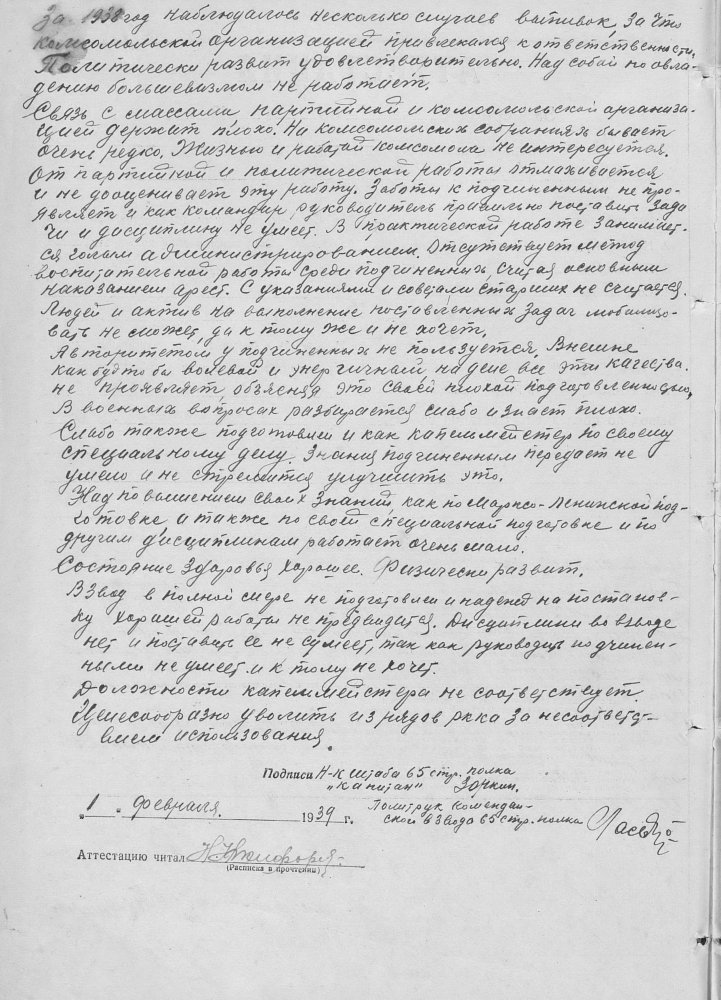 За 1938 год наблюдалось несколько случаев выпивок, за что
комсомольской организацией привлекался к ответственности.
Политически развит удовлетворительно. Над собой по овла-
дению большевизмом не работает.
Связь с массами партийной и комсомольской организа-
цией держит плохо. На комсомольских собраниях бывает
очень редко. Жизнью и работой комсомола не интересуется.
От партийной и политической работы отмахивается
и не дооценивает эту работу. Заботы к подчиненным не про-
являет и как командир руководитель правильно поставить зада
чи и дисциплину не умеет. В практической работе занимает-
ся голым администрированием. Отсутствует метод
воспитательной работы среди подчиненных, считая основным
наказанием арест. С указаниями и советами старших не считается.
Людей и актив на выполнение поставленных задач мобилизо-
вать не сможет, да к тому же и не хочет.
Авторитетом у подчиненных не пользуется. Внешне
как будто бы волевой и энергичный на деле все эти качества
не проявляет, объясняя это своей плохой подготовленностью.
В военных вопросах разбирается слабо и знает плохо.
Слабо также подготовлен и как капельмейстер по своему
специальному делу. Знания подчиненным передает не
умело и не стремится улучшить это.
Над повышением своих знаний, как по Марксо-Ленинской под-
готовке, и также по своей специальной подготовке и по
другим дисциплинам работает очень мало.
Состояние здоровья хорошее. Физически развит.
Взвод в полной мере не подготовлен и надежд на постанов-
ку хорошей работы не предвидится. Дисциплины во взводе
нет и поставить ее не сумеет, так как руководить подчинен-
ными не умеет и к тому не хочет.
Должности капельмейстера не соответствует.
Целесообразно уволить из рядов РККА за несоответст-
вием использования.
Подписи Н-к штаба 65 стр. полка
"капитан" Зоркин.
"1" февраля 1939 г.
Политрук комендан-
ской взвода 65 стр. полка
Аттестацию читал
(Расписка в прочтении)